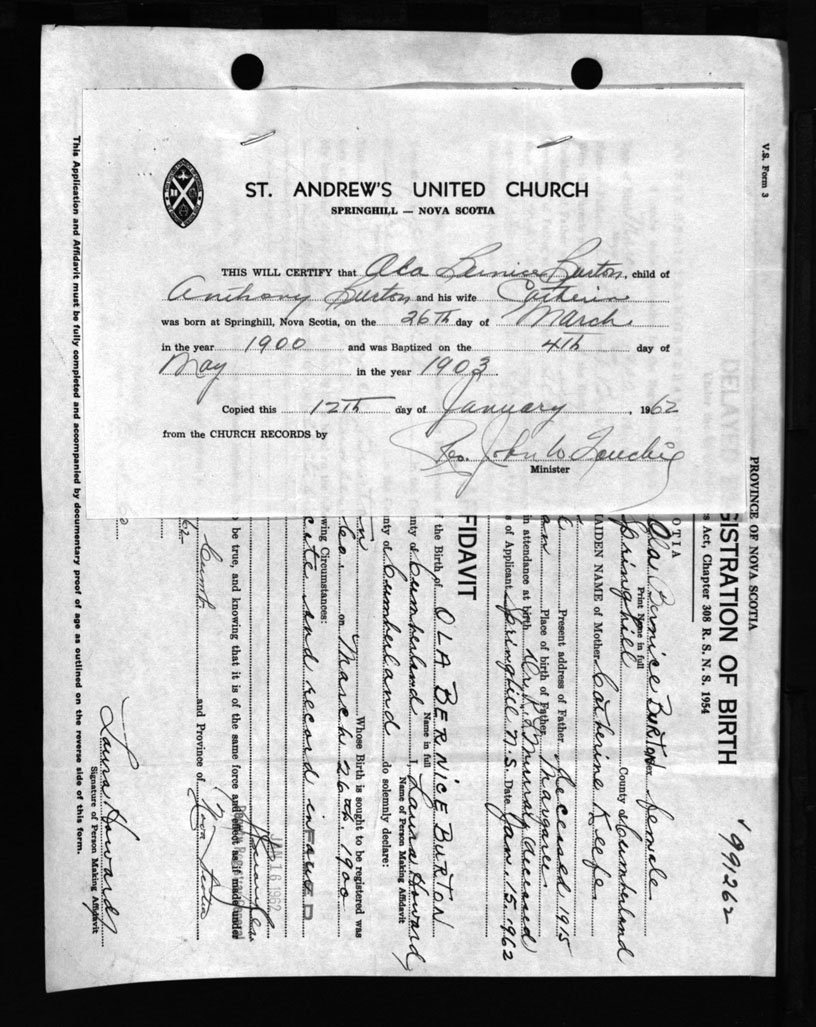 ST. ANDREW'S UNITED CHURCH
SPRINGHILL — NOVA SCOTIA
THIS WILL CERTIFY that Ola Bernice Burton, child of
Anthony Burton and his wife Catherin
was born at Springhill, Nova Scotia, on the 26Th day of March
in the year 1900 and was Baptized on the 4Th day of
May in the year 1903.
Copied this 12Th day of January, 1962
from the CHURCH RECORDS by
Rev. John W
Minister
V.S. Form 3
PROVINCE OF NOVA SCOTIA
DELAYED
GISTRATION OF BIRTH
s Act, Chapter 308 R. S. N. S. 1954
991262
OTIA
Ola Bernice Burton female
Print Name in full
pringhill County of Cumberland
AIDEN NAME of Mother Catherine Keefe
Present address of Father deceased 1915
Place of birth of Father Margaree
in attendance at birth Murray deceased
s of Applicant Springhill N.S. Date Jan. 15. 1962
FIDAVIT
f the Birth of OLA BERNICE BURTON
Name in full
unty of Cumberland I, Laura Howard
Name of Person Making Affidavit
nty of Cumberland do solemnly declare:
Whose Birth is sought to be registered was
on March 26th. 1900
wing Circumstances:
and record in
JAN 16 1962
o be true, and knowing that it is of the same force and effect as if made under
Cumb and Province of Nova Scotia
62
Laura Howard
Signature of Person Making Affidavit
This Application and Affidavit must be fully completed and accompanied by documentary proof of age as outlined on the reverse side of this form.